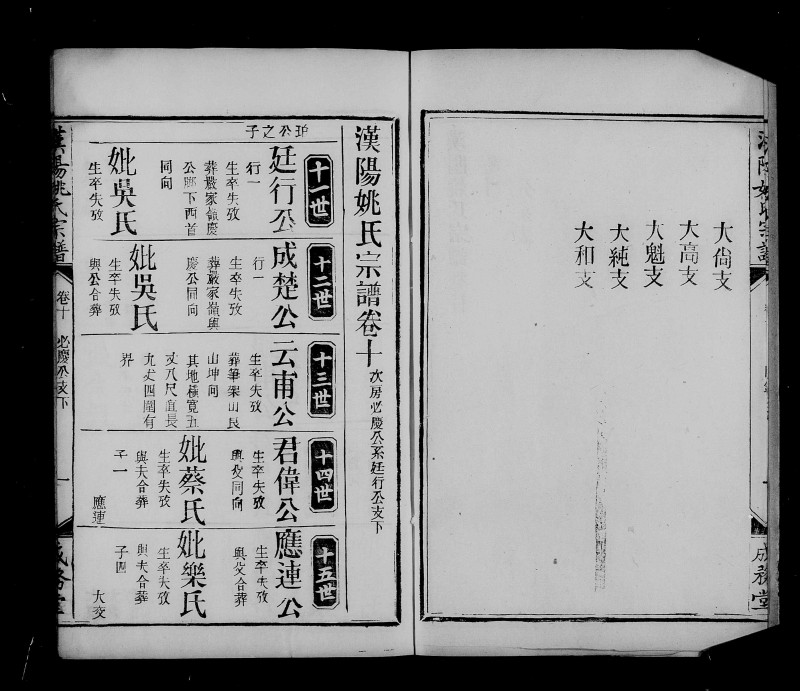 大尙支
大高支
大魁支
大純支
大和支
成務堂
漢陽姚氏宗譜卷十
次房必慶公系廷行公支下
十一世
珆公之子
廷行公
行一
生卒失攷
葬嚴家嶺慶
公鄉下西首
同向
妣吳氏
生卒失攷
十二世
成楚公
行一
生卒失攷
葬嚴家嶺與
慶公同向
妣吳氏
生卒失攷
與公合葬
十三世
云甫公
生卒失攷
葬筆架山艮
山坤向
其地橫寬五
丈八尺直長
九丈四圍有
界
十四世
君偉公
生卒失攷
與父同向
妣蔡氏
生卒失攷
與夫合葬
子一
應連
十五世
應連公
生卒失攷
與父合葬
妣樂氏
生卒失攷
與夫合葬
子四
漢陽姚氏宗譜
卷十
必慶公支下
一